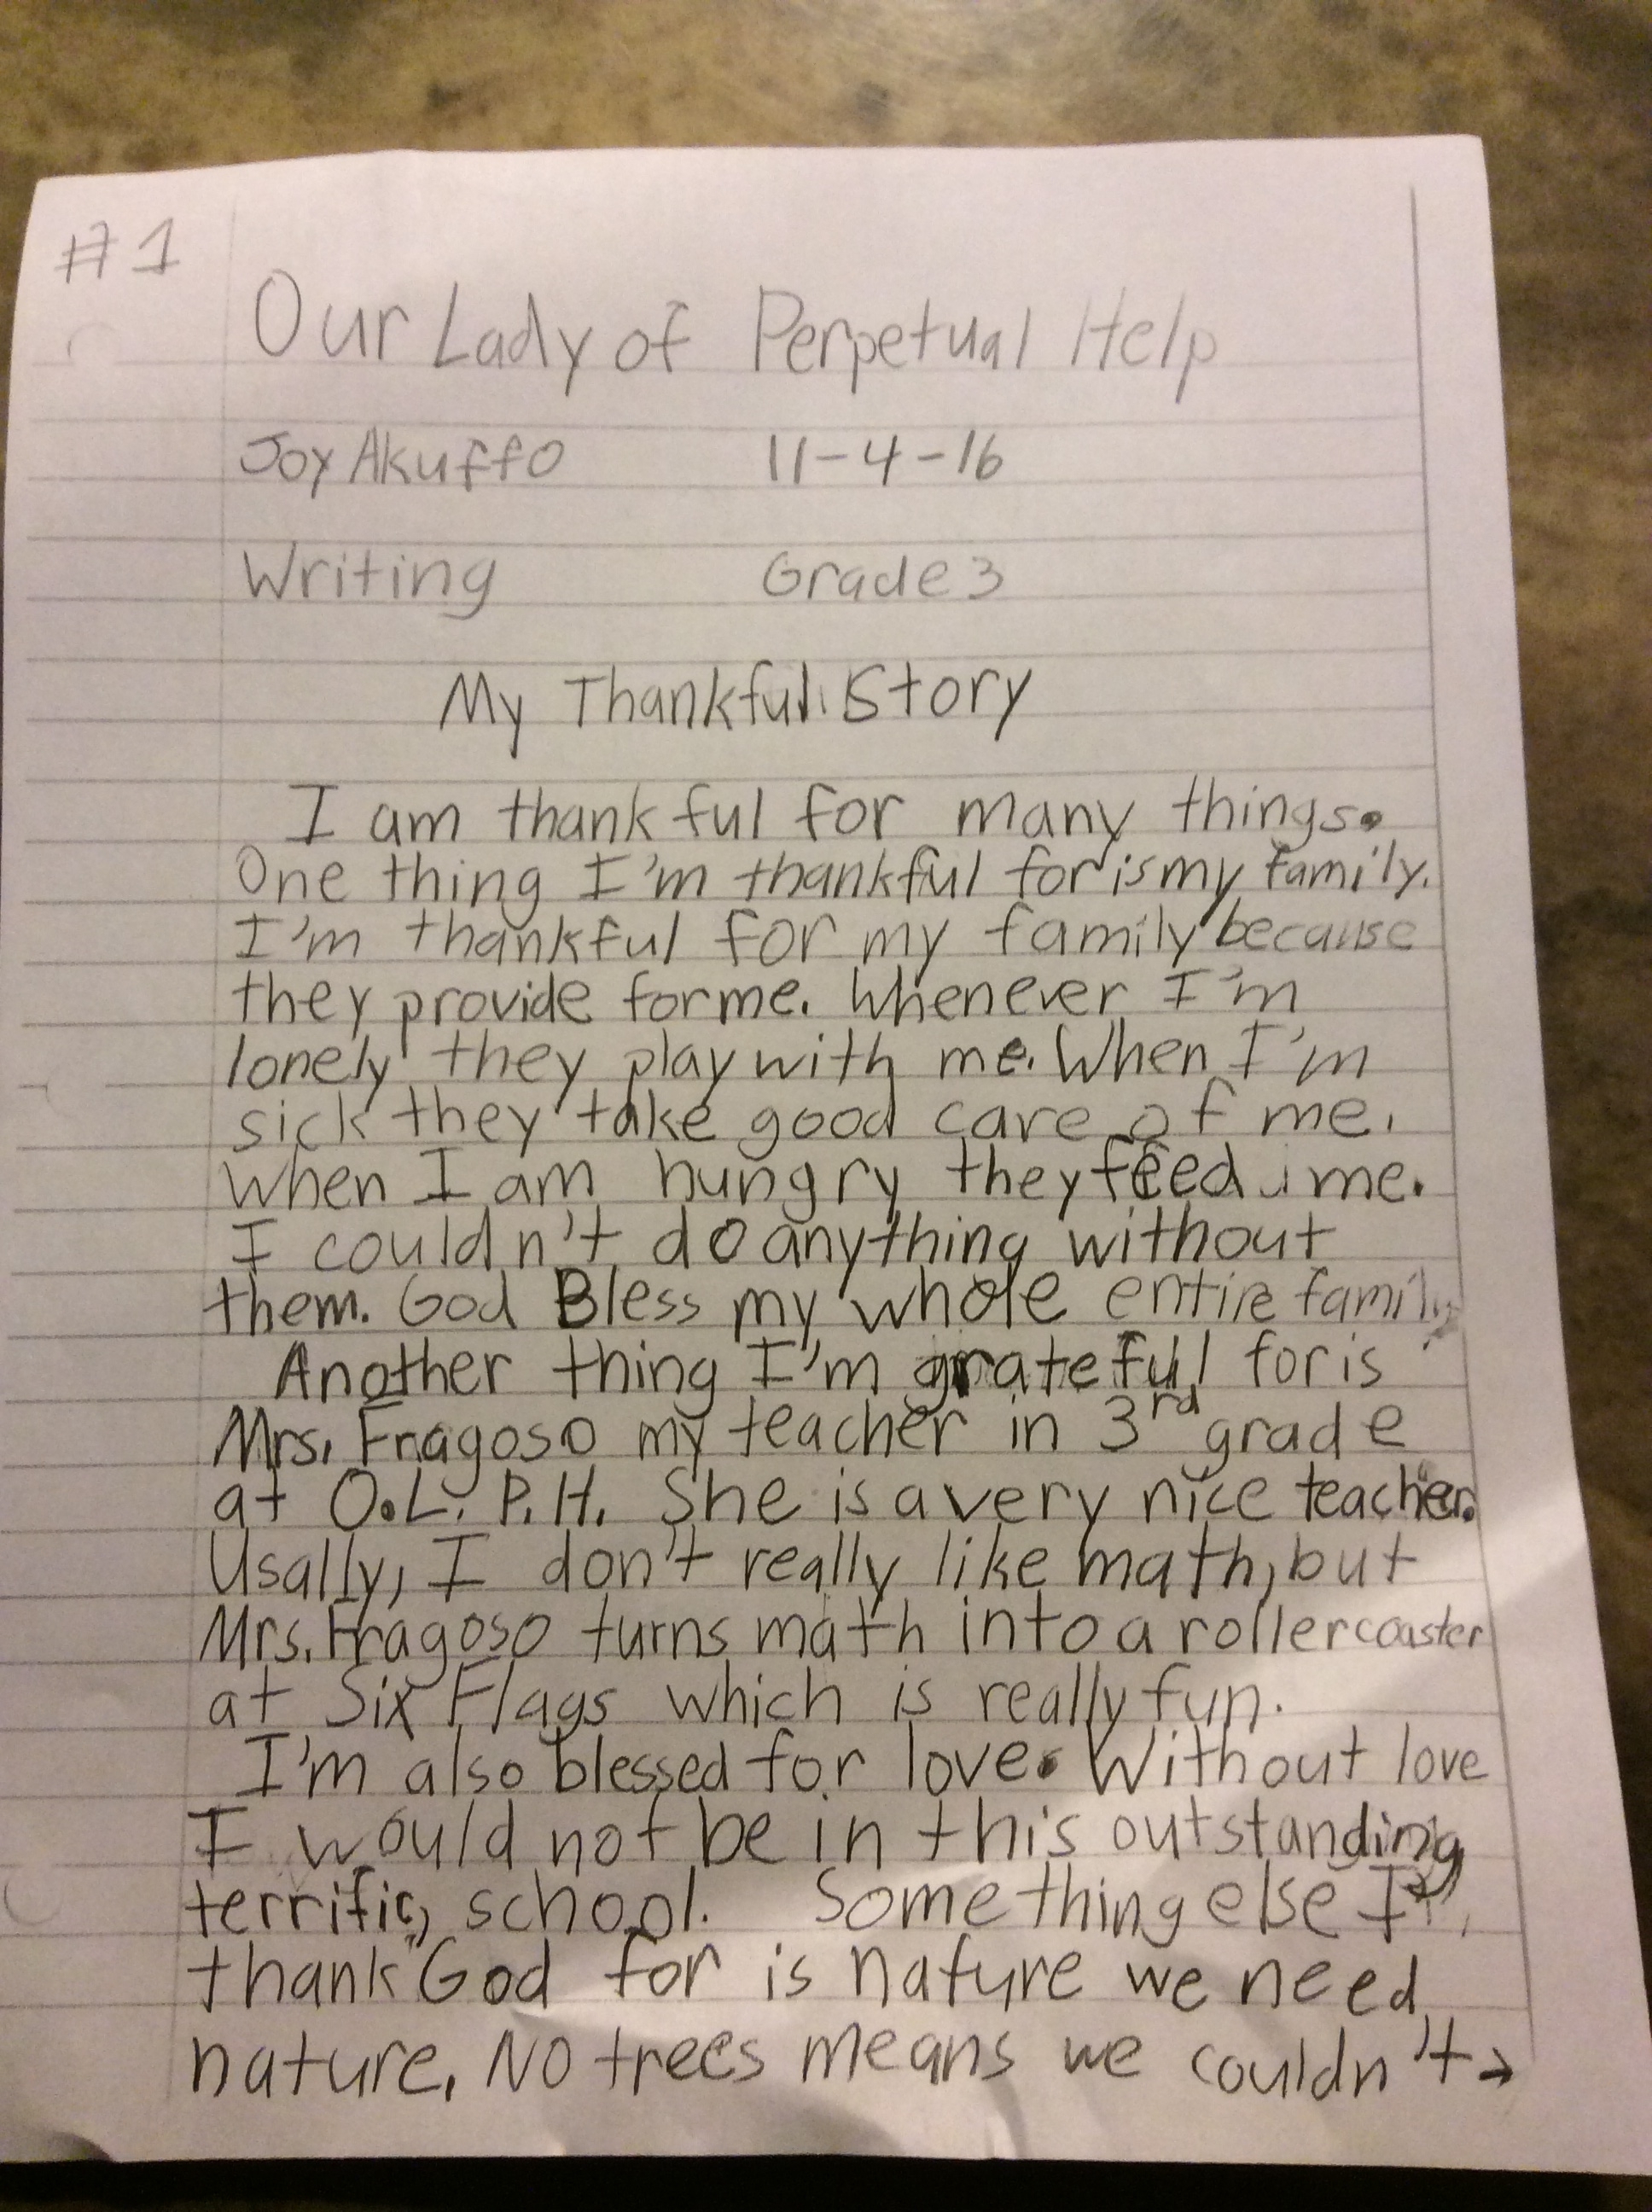 #1
Our Lady of Perpetual Help
Joy Akuffo 11-4-16
Writing Grade 3
My Thankful Story
I am thankful for many things.
One thing I'm thankful for is my family.
I'm thankful for my family because
they provide for me. Whenever I'm
lonely they play with me. When I'm
sick they take good care of me.
When I am hungry they feed me.
I couldn't do anything without
them. God Bless my whole entire family.
Another thing I'm grateful for is
Mrs. Fragoso my teacher in 3rd grade
at O.L.P.H. She is a very nice teacher.
Usally, I don't really like math, but
Mrs. Fragoso turns math into a rollercoaster
at Six Flags which is really fun.
I'm also blessed for love. Without love
I would not be in this outstanding,
terrific, school. Something else I
thank God for is nature we need
nature. No trees means we couldn't →